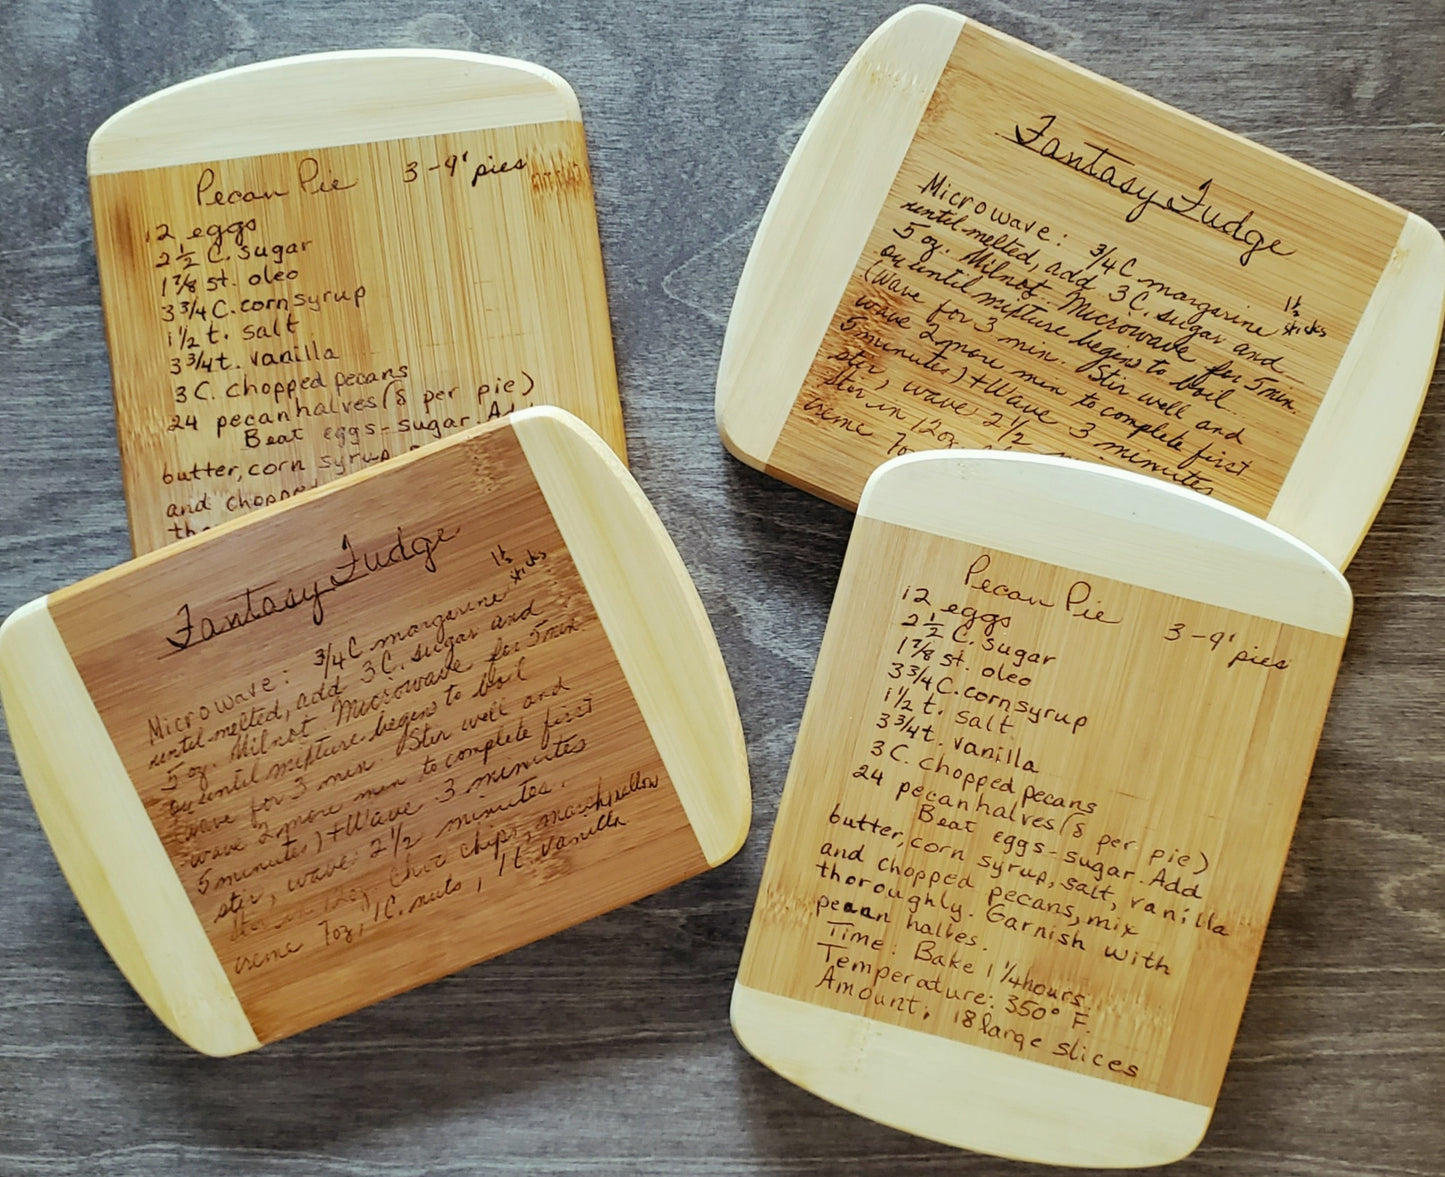 Pecan Pie 3-9' pies
12 eggs
2 1/2 C. sugar
1 7/8 st. oleo
3 3/4 C. corn syrup
1 1/2 t. salt
3 3/4 t. vanilla
3 C. chopped pecans
24 pecan halves (8 per pie)
Beat eggs-sugar. Ad
butter, corn syrup
and chopped
tho
Fantasy Fudge
Microwave: 3/4 C margarine 1 1/2 sticks
until melted, add 3 C. sugar and
5 oz. Milnot. Microwave for 5 min.
or until mixture begins to boil.
(Wave for 3 min. Stir well and
wave 2 more min to complete first
5 minutes) + Wave 3 minutes
stir, wave 2 1/2
stir in 12 oz.
creme 7 oz
Fantasy Fudge
Microwave: 3/4 C margarine 1 1/2 sticks
until melted, add 3 C. sugar and
5 oz. Milnot. Microwave for 5 min
or until mixture begins to boil
(wave for 3 min. Stir well and
wave 2 more min to complete first
5 minutes) + Wave 3 minutes
stir, wave 2 1/2 minutes.
stir in 12 oz. choc chips, marshmallow
creme 7 oz, 1 C. nuts, 1 t. vanilla
Pecan Pie 3-9' pies
12 eggs
2 1/2 C. sugar
1 7/8 st. oleo
3 3/4 C. corn syrup
1 1/2 t. salt
3 3/4 t. vanilla
3 C. chopped pecans
24 pecan halves (8 per pie)
Beat eggs-sugar. Add
butter, corn syrup, salt, vanilla
and chopped pecans, mix
thoroughly. Garnish with
pecan halves.
Time: Bake 1 1/4 hours
Temperature: 350° F.
Amount: 18 large slices